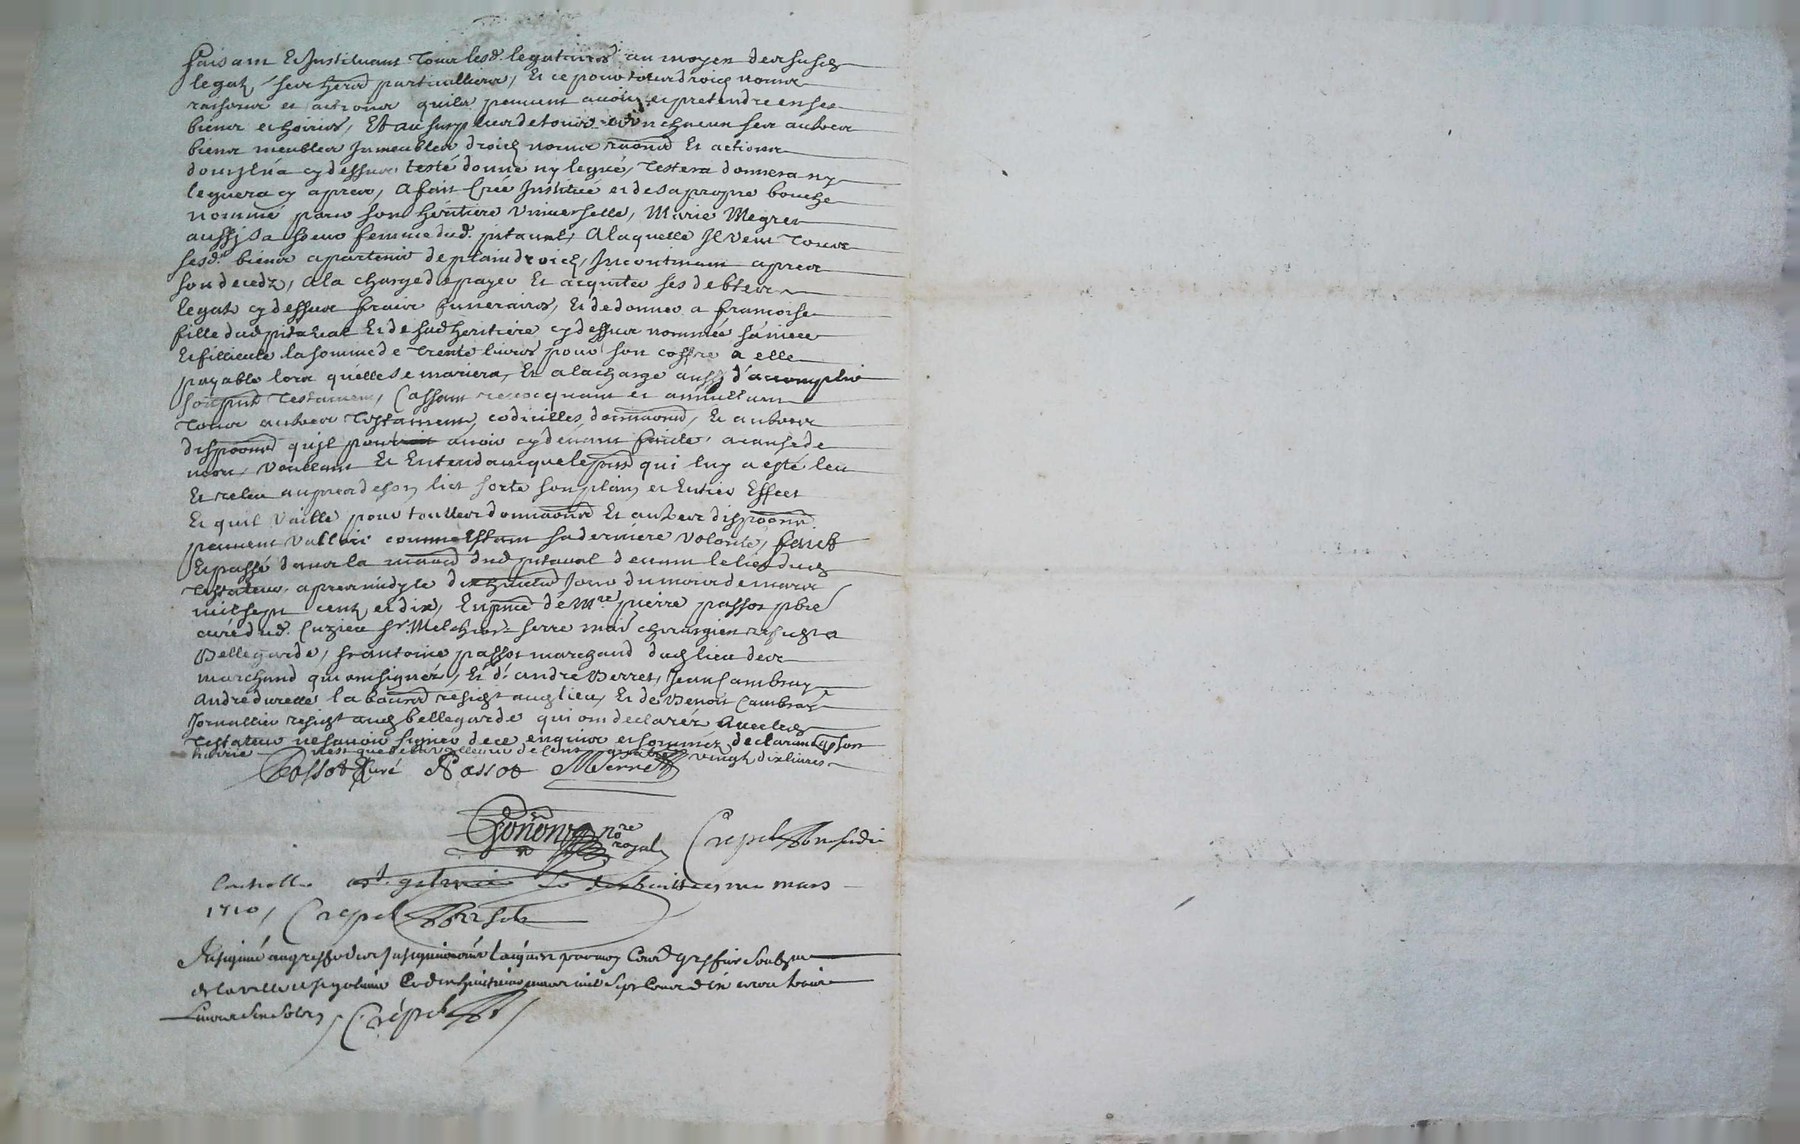 faisant et Instituant tous lesd. legataires au moyen des susd
legatz ses herrs particulliers, Et ce pour tous droicts noms
raisons et actions quils peuvent avoir et pretendre en ses
biens et hoiries, Et au surplus de tous un chacun ses autres
biens meubles Immeubles droicts noms raons Et actions
dont Il na cy dessus testé donné ny legué, testera donnera ny
leguera cy apres, a fait Creé Institué et de sa propre bouche
nommé pour son heritiere universelle, Marie Megret
aussy sa soeur femme dud. pitaval, a laquelle Il veut tous
sesd. biens apartenir de plain droict, Incontinant apres
son decedz, a la charge de payer Et acquiter ses debtes
legatz cy dessus fraix funeraires, Et de donner a francoise
fille dud pitaval Et de sad heritiere cy dessus nommée sa niece
Et fillieule la somme de trente livres pour son coffre a elle
payable lors quelle se mariera, Et a la charge aussy d'acomplir
sond pnt testament, Cassant revocquant et annullant
tous autres testaments, codicilles, donnaons, Et autres
dispoons quil pourroit avoir cy devant faicte, a cause de
mort, voullant Et Entendant que le pnt qui luy a esté leu
Et releu aupres de son lict sorte son plain et Entier Effect
Et quil vaille pour toutes donnaons Et autres dispoons
peuvent valloir comme Estant sa derniere volonté, faict
Et passé dans la maison dud pitaval devant le lict dud
testateur, apres midy le dix huictie Jour du mois de mars
mil sept centz et dix, En pnce de Mre pierre passot pbre
curé dud. Cuzieu Sr. Melchior serre mai chirurgien resid a
Bellegarde, sr antoine passot marchand dud lieu
marchand qui ont signés, Et d'andré Verret, Jean Cambray
André durelle laboureurs residt aud lieu, Et de Benoit Cambray
Jornallier residt aud bellegarde qui ont declarés avec led
testateur ne scavoir signer de ce enquis et sommez, declarant que son
hoirie nest que de la valleur de cent quatre vingt dix livres
Passot Curé APassot MSerre
Gonon nore royal Crepet
Controllé a st. galmier le dix huitiesme mars
1710, Crepet
Insinué au greffe des Insinuations laiques par moy Comis greffier soubzne
de la ville de st galmier Ce dix huitieme mars mil sept cens dix
Crépet